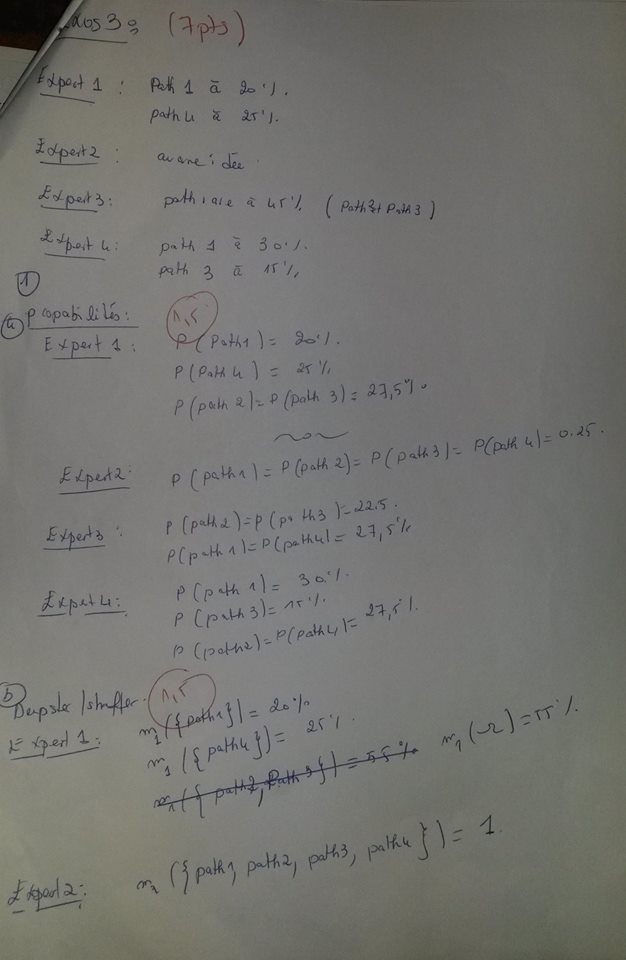 Exos 3 : (7pts)
Expert 1 : Path 1 à 20 %.
path 4 à 25 %.
Expert 2 : aucune idée.
Expert 3 : à 45 % (Path 2 + Path 3)
Expert 4 : path 1 à 30 %.
path 3 à 15 %
1
a Probabilités : 1,5
Expert 1 : P(Path 1) = 20 %.
P(Path 4) = 25 %
P(path 2) = P(path 3) = 27,5 %
Expert 2 : P(path 1) = P(path 2) = P(path 3) = P(path 4) = 0.25.
Expert 3 : P(path 2) = P(path 3) = 22.5.
P(path 1) = P(path 4) = 27,5 %
Expert 4 : P(path 1) = 30 %.
P(path 3) = 15 %.
P(path 2) = P(path 4) = 27,5 %.
b Dempster / shaffer. 1,5
Expert 1 : m1({path 1}) = 20 %
m1({path 4}) = 25 %.
m1({path 2, Path 3}) = 55 % m1(Ω) = 55 %
Expert 2 : m2({path 1, path 2, path 3, path 4}) = 1.